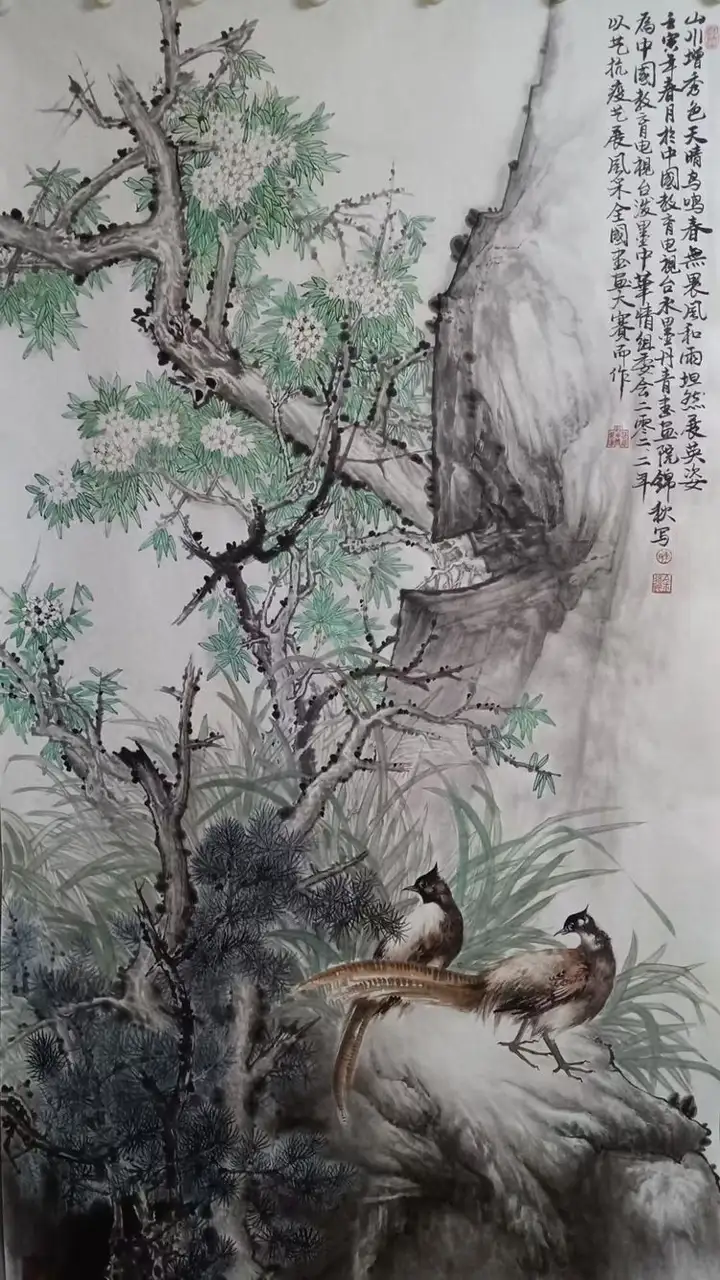 山川增秀色天晴鸟鸣春无畏风和雨坦然展英姿
壬寅年春月於中國教育电視台水墨丹青书画院錦秋写
為中國教育电視台泼墨中華情组委会二零二二年
以艺抗疫艺展风采全國书画大賽而作